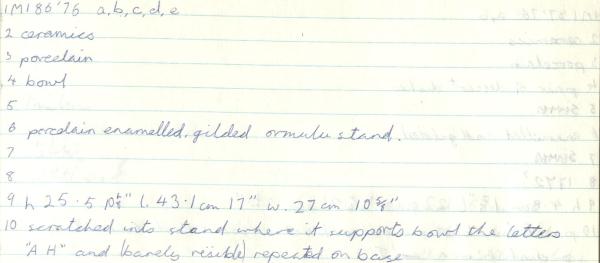 1M186'76 a,b,c,d,e
2 ceramics
3 porcelain
4 bowl
5
6 porcelain enamelled. gilded ormulu stand.
7
8
9 h 25.5 l. 43.1 cm 17" w. 27cm 10 5/8"
10 scratched into stand where it supports bowl the letters
"A H" and (barely visible) repeated on base